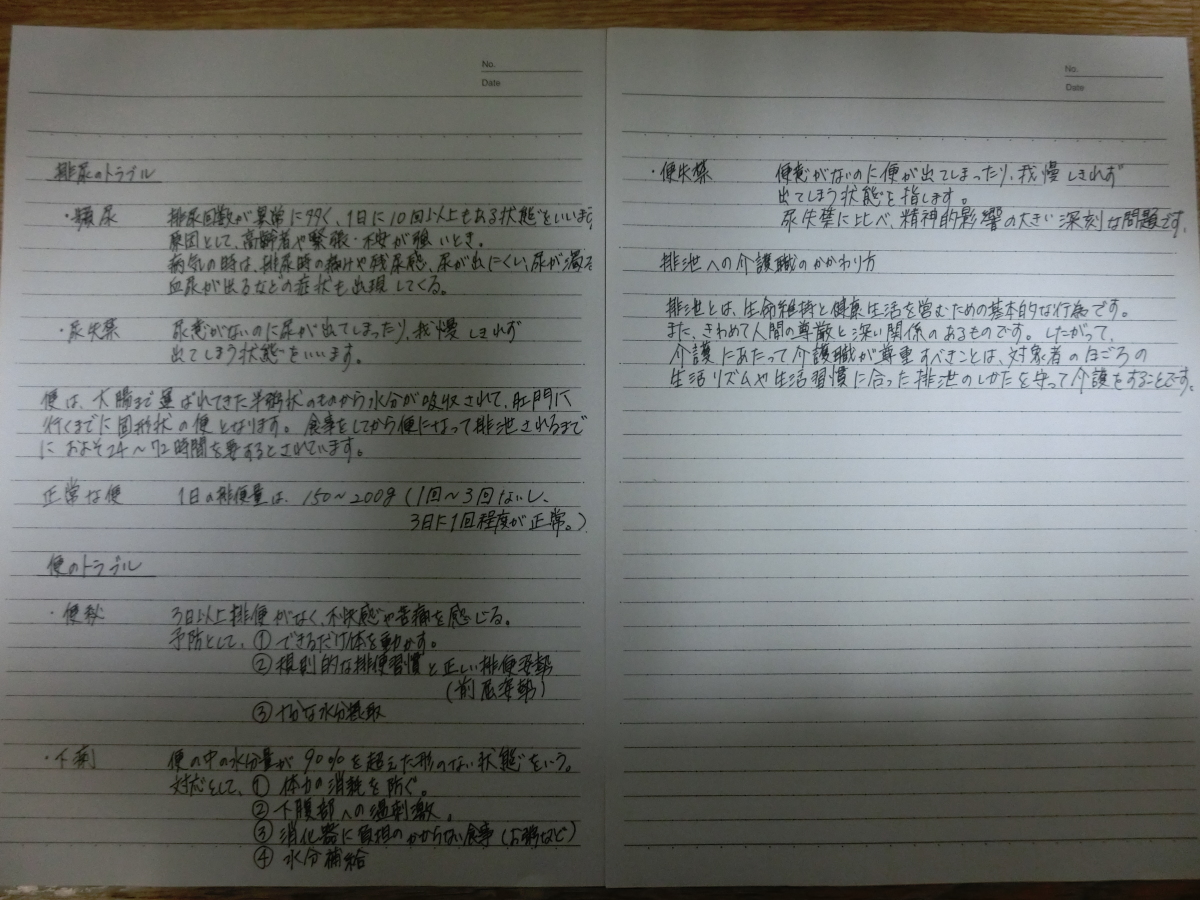 No.
Date
排尿のトラブル
・頻尿 排尿回数が異常に多く、1日に10回以上もある状態をいいます
原因として、高齢者や緊張・不安が強いとき。
病気の時は、排尿時の痛みや残尿感、尿が出にくい、尿が濁る
血尿が出るなどの症状も出現してくる。
・尿失禁 尿意がないのに尿が出てしまったり、我慢しきれず
出てしまう状態をいいます。
便は、大腸まで運ばれてきた半粥状のものから水分が吸収されて、肛門に
行くまでに固形状の便となります。食事をしてから便になって排泄されるまで
におよそ24〜72時間を要するとされています。
正常な便 1日の排便量は、150〜200g(1回〜3回ないし、
3日に1回程度が正常。)
便のトラブル
・便秘 3日以上排便がなく、不快感や苦痛を感じる。
予防として、① できるだけ体を動かす。
② 規則的な排便習慣と正しい排便姿勢
(前屈姿勢)
③ 十分な水分摂取
・下痢 便の中の水分量が90%を超えた形のない状態をいう。
対応として、① 体力の消耗を防ぐ。
② 下腹部への温刺激。
③ 消化器に負担のかからない食事(お粥など)
④ 水分補給
No.
Date
・便失禁 便意がないのに便が出てしまったり、我慢しきれず
出てしまう状態を指します。
尿失禁に比べ、精神的影響の大きい深刻な問題です。
排泄への介護職のかかわり方
排泄とは、生命維持と健康生活を営むための基本的な行為です。
また、きわめて人間の尊厳と深い関係のあるものです。したがって、
介護にあたって介護職が尊重すべきことは、対象者の日ごろの
生活リズムや生活習慣に合った排泄のしかたを守って介護をすることです。